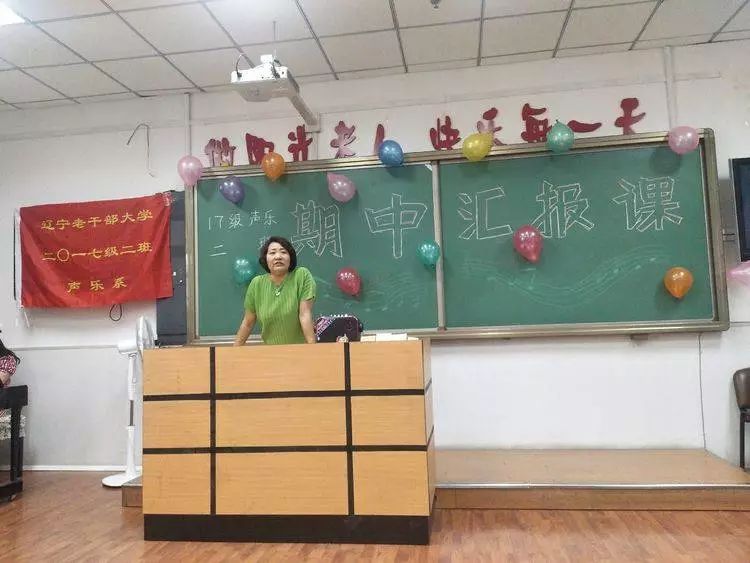 做阳光老人 快乐每一天
辽宁老干部大学
二〇一七级二班
声乐系
17级声乐
二 班
期中汇报课